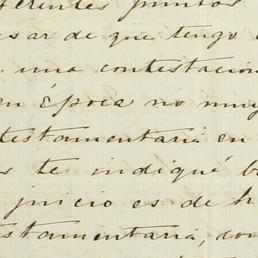 ferentes puntos
esar de que tengo
una contestación
en Época no muy
testamentaria en
s te indiqué b
juicio es de h
stamentaria, don